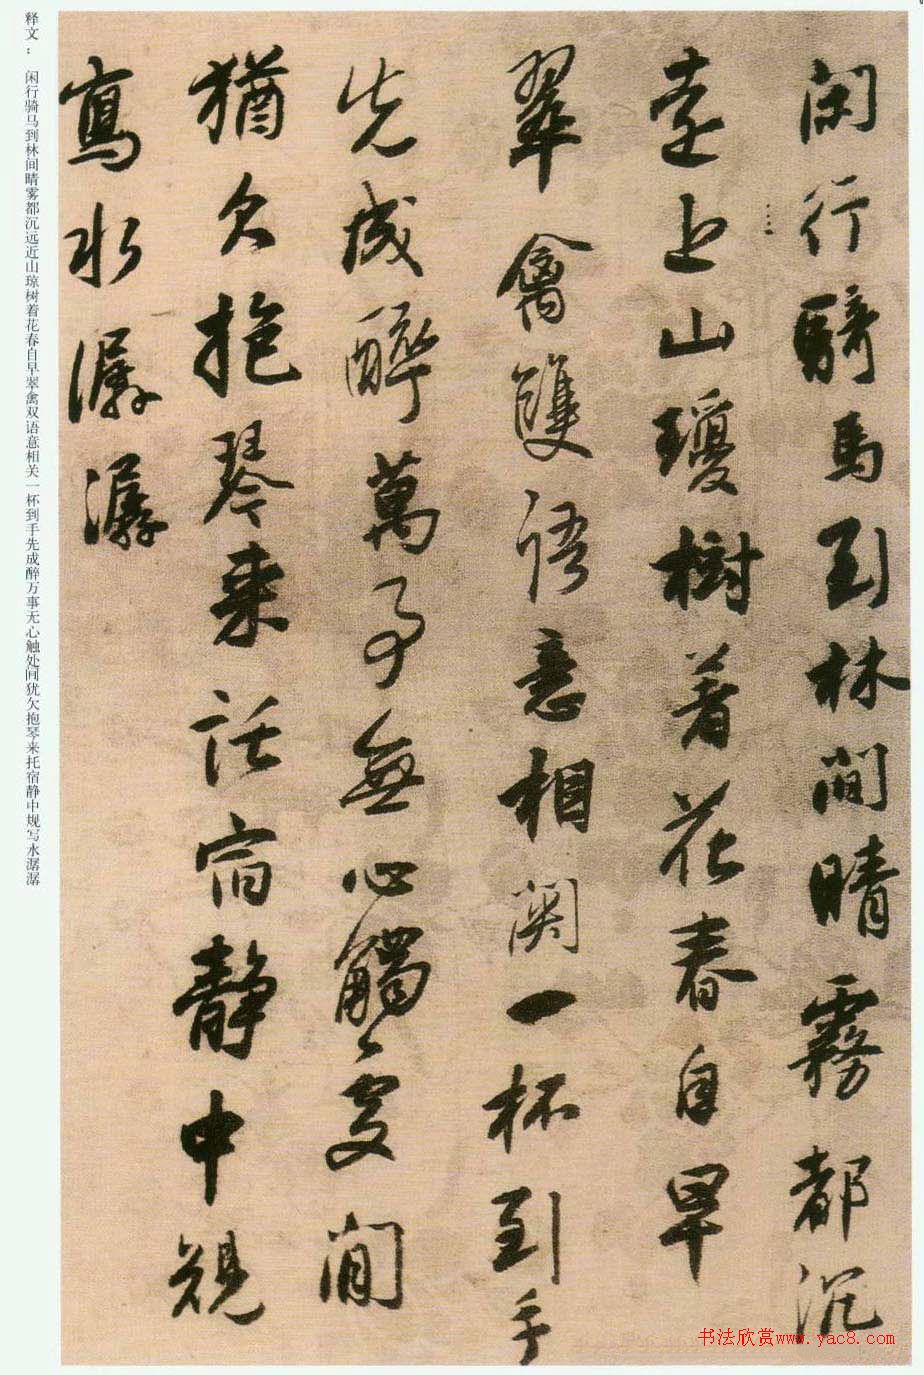 閑行騎馬到林間晴霧都沉
遠近山瓊樹著花春自早
翠禽雙語意相關一杯到手
先成醉萬事無心觸處間
猶欠抱琴来託宿静中規
寫水潺潺
释文： 闲行骑马到林间晴雾都沉远近山琼树着花春自早翠禽双语意相关一杯到手先成醉万事无心触处间犹欠抱琴来托宿静中规写水潺潺
书法欣赏www.yac8.com